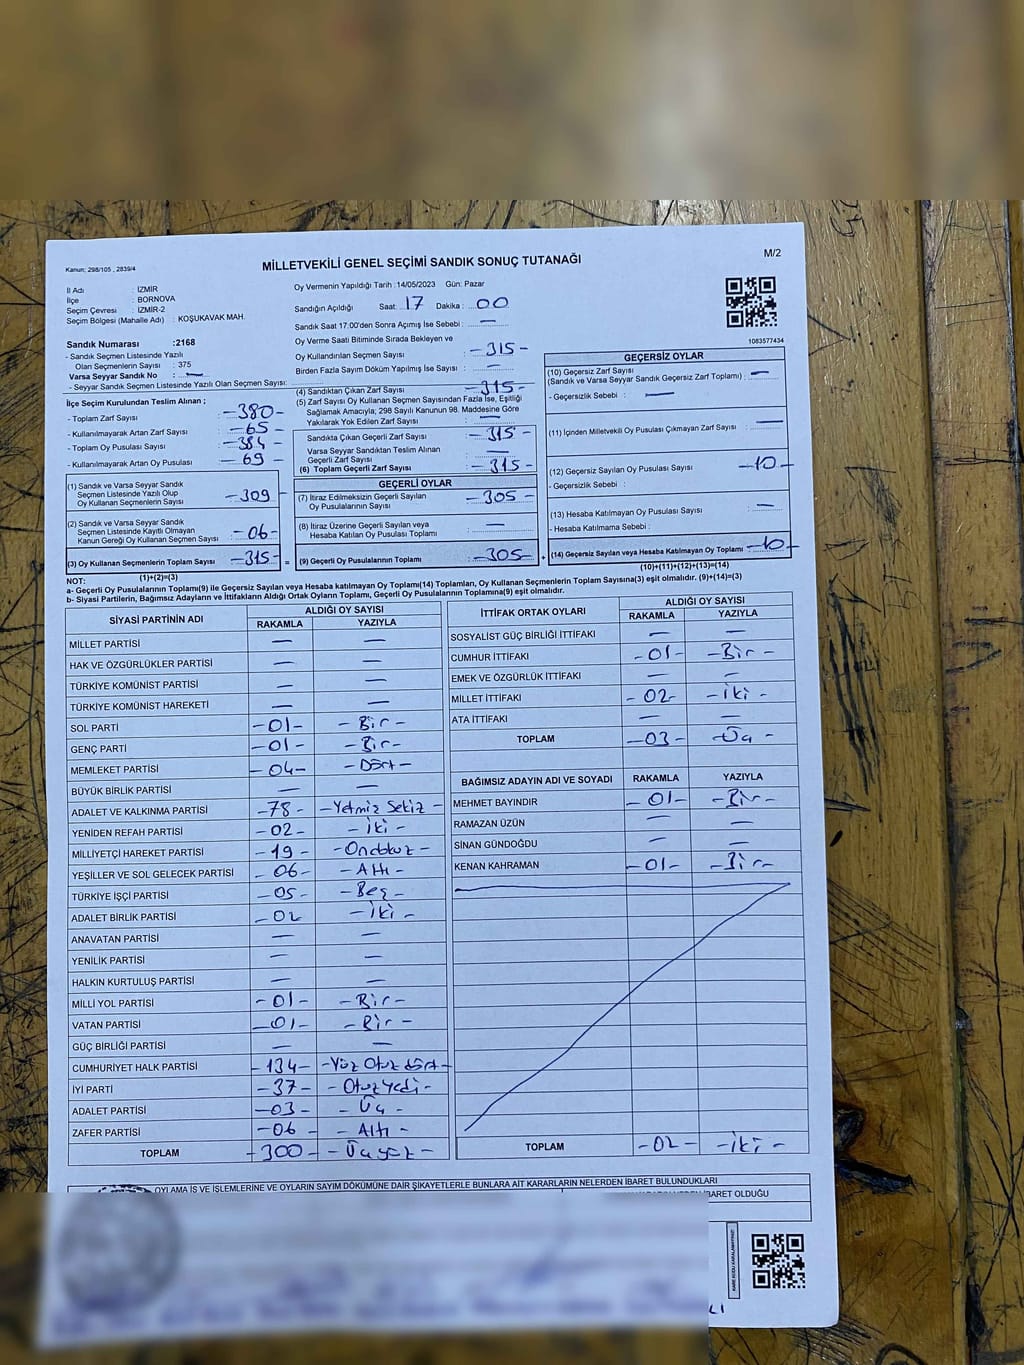 Kanun: 298/105 , 2839/4
MİLLETVEKİLİ GENEL SEÇİMİ SANDIK SONUÇ TUTANAĞI
M/2
İl Adı : İZMİR
İlçe : BORNOVA
Seçim Çevresi : İZMİR-2
Seçim Bölgesi (Mahalle Adı) : KOŞUKAVAK MAH.
Sandık Numarası :2168
- Sandık Seçmen Listesinde Yazılı
Olan Seçmenlerin Sayısı : 375
Varsa Seyyar Sandık No : —
- Seyyar Sandık Seçmen Listesinde Yazılı Olan Seçmen Sayısı:
İlçe Seçim Kurulundan Teslim Alınan ;
- Toplam Zarf Sayısı : -380-
- Kullanılmayarak Artan Zarf Sayısı : -65-
- Toplam Oy Pusulası Sayısı : -384-
- Kullanılmayarak Artan Oy Pusulası : -69-
(1) Sandık ve Varsa Seyyar Sandık
Seçmen Listesinde Yazılı Olup
Oy Kullanan Seçmenlerin Sayısı : -309-
(2) Sandık ve Varsa Seyyar Sandık
Seçmen Listesinde Kayıtlı Olmayan
Kanun Gereği Oy Kullanan Seçmen Sayısı : -06-
(3) Oy Kullanan Seçmenlerin Toplam Sayısı : -315-
(1)+(2)=(3)
Oy Vermenin Yapıldığı Tarih : 14/05/2023 Gün: Pazar
Sandığın Açıldığı Saat: 17 Dakika : 00
Sandık Saat 17:00'den Sonra Açımış İse Sebebi : —
Oy Verme Saati Bitiminde Sırada Bekleyen ve
Oy Kullandırılan Seçmen Sayısı : -315-
Birden Fazla Sayım Döküm Yapılmış İse Sayısı : —
(4) Sandıktan Çıkan Zarf Sayısı : -315-
(5) Zarf Sayısı Oy Kullanan Seçmen Sayısından Fazla İse, Eşitliği
Sağlamak Amacıyla; 298 Sayılı Kanunun 98. Maddesine Göre
Yakılarak Yok Edilen Zarf Sayısı : —
Sandıkta Çıkan Geçerli Zarf Sayısı : -315-
Varsa Seyyar Sandıktan Teslim Alınan
Geçerli Zarf Sayısı : —
(6) Toplam Geçerli Zarf Sayısı : -315-
GEÇERLİ OYLAR
(7) İtiraz Edilmeksizin Geçerli Sayılan
Oy Pusulalarının Sayısı : -305-
(8) İtiraz Üzerine Geçerli Sayılan veya
Hesaba Katılan Oy Pusulası Toplamı : —
(9) Geçerli Oy Pusulalarının Toplamı : -305-
1083577434
GEÇERSİZ OYLAR
(10) Geçersiz Zarf Sayısı
(Sandık ve Varsa Seyyar Sandık Geçersiz Zarf Toplamı) : —
- Geçersizlik Sebebi : —
(11) İçinden Milletvekili Oy Pusulası Çıkmayan Zarf Sayısı : —
(12) Geçersiz Sayılan Oy Pusulası Sayısı : -10-
- Geçersizlik Sebebi :
(13) Hesaba Katılmayan Oy Pusulası Sayısı : —
- Hesaba Katılmama Sebebi :
(14) Geçersiz Sayılan veya Hesaba Katılmayan Oy Toplamı : -10-
(10)+(11)+(12)+(13)=(14)
NOT:
a- Geçerli Oy Pusulalarının Toplamı(9) ile Geçersiz Sayılan veya Hesaba katılmayan Oy Toplamı(14) Toplamları, Oy Kullanan Seçmenlerin Toplam Sayısına(3) eşit olmalıdır. (9)+(14)=(3)
b- Siyasi Partilerin, Bağımsız Adayların ve İttifakların Aldığı Ortak Oyların Toplamı, Geçerli Oy Pusulalarının Toplamına(9) eşit olmalıdır.
SİYASİ PARTİNİN ADI ALDIĞI OY SAYISI
RAKAMLA YAZIYLA
MİLLET PARTİSİ — —
HAK VE ÖZGÜRLÜKLER PARTİSİ — —
TÜRKİYE KOMÜNİST PARTİSİ — —
TÜRKİYE KOMÜNİST HAREKETİ — —
SOL PARTİ -01- -Bir-
GENÇ PARTİ -01- -Bir-
MEMLEKET PARTİSİ -04- -Dört-
BÜYÜK BİRLİK PARTİSİ — —
ADALET VE KALKINMA PARTİSİ -78- -Yetmiş Sekiz-
YENİDEN REFAH PARTİSİ -02- -İki-
MİLLİYETÇİ HAREKET PARTİSİ -19- -Ondokuz-
YEŞİLLER VE SOL GELECEK PARTİSİ -06- -Altı-
TÜRKİYE İŞÇİ PARTİSİ -05- -Beş-
ADALET BİRLİK PARTİSİ -02- -İki-
ANAVATAN PARTİSİ — —
YENİLİK PARTİSİ — —
HALKIN KURTULUŞ PARTİSİ — —
MİLLİ YOL PARTİSİ -01- -Bir-
VATAN PARTİSİ -01- -Bir-
GÜÇ BİRLİĞİ PARTİSİ — —
CUMHURİYET HALK PARTİSİ -134- -Yüz Otuz dört-
İYİ PARTİ -37- -Otuz Yedi-
ADALET PARTİSİ -03- -Üç-
ZAFER PARTİSİ -06- -Altı-
TOPLAM -300- -Üçyüz-
İTTİFAK ORTAK OYLARI ALDIĞI OY SAYISI
RAKAMLA YAZIYLA
SOSYALİST GÜÇ BİRLİĞİ İTTİFAKI — —
CUMHUR İTTİFAKI -01- -Bir-
EMEK VE ÖZGÜRLÜK İTTİFAKI — —
MİLLET İTTİFAKI -02- -İki-
ATA İTTİFAKI — —
TOPLAM -03- -Üç-
BAĞIMSIZ ADAYIN ADI VE SOYADI RAKAMLA YAZIYLA
MEHMET BAYINDIR -01- -Bir-
RAMAZAN ÜZÜN — —
SİNAN GÜNDOĞDU — —
KENAN KAHRAMAN -01- -Bir-
TOPLAM -02- -İki-
OYLAMA İŞ VE İŞLEMLERİNE VE OYLARIN SAYIM DÖKÜMÜNE DAİR ŞİKAYETLERLE BUNLARA AİT KARARLARIN NELERDEN İBARET BULUNDUKLARI
İBARET OLDUĞU